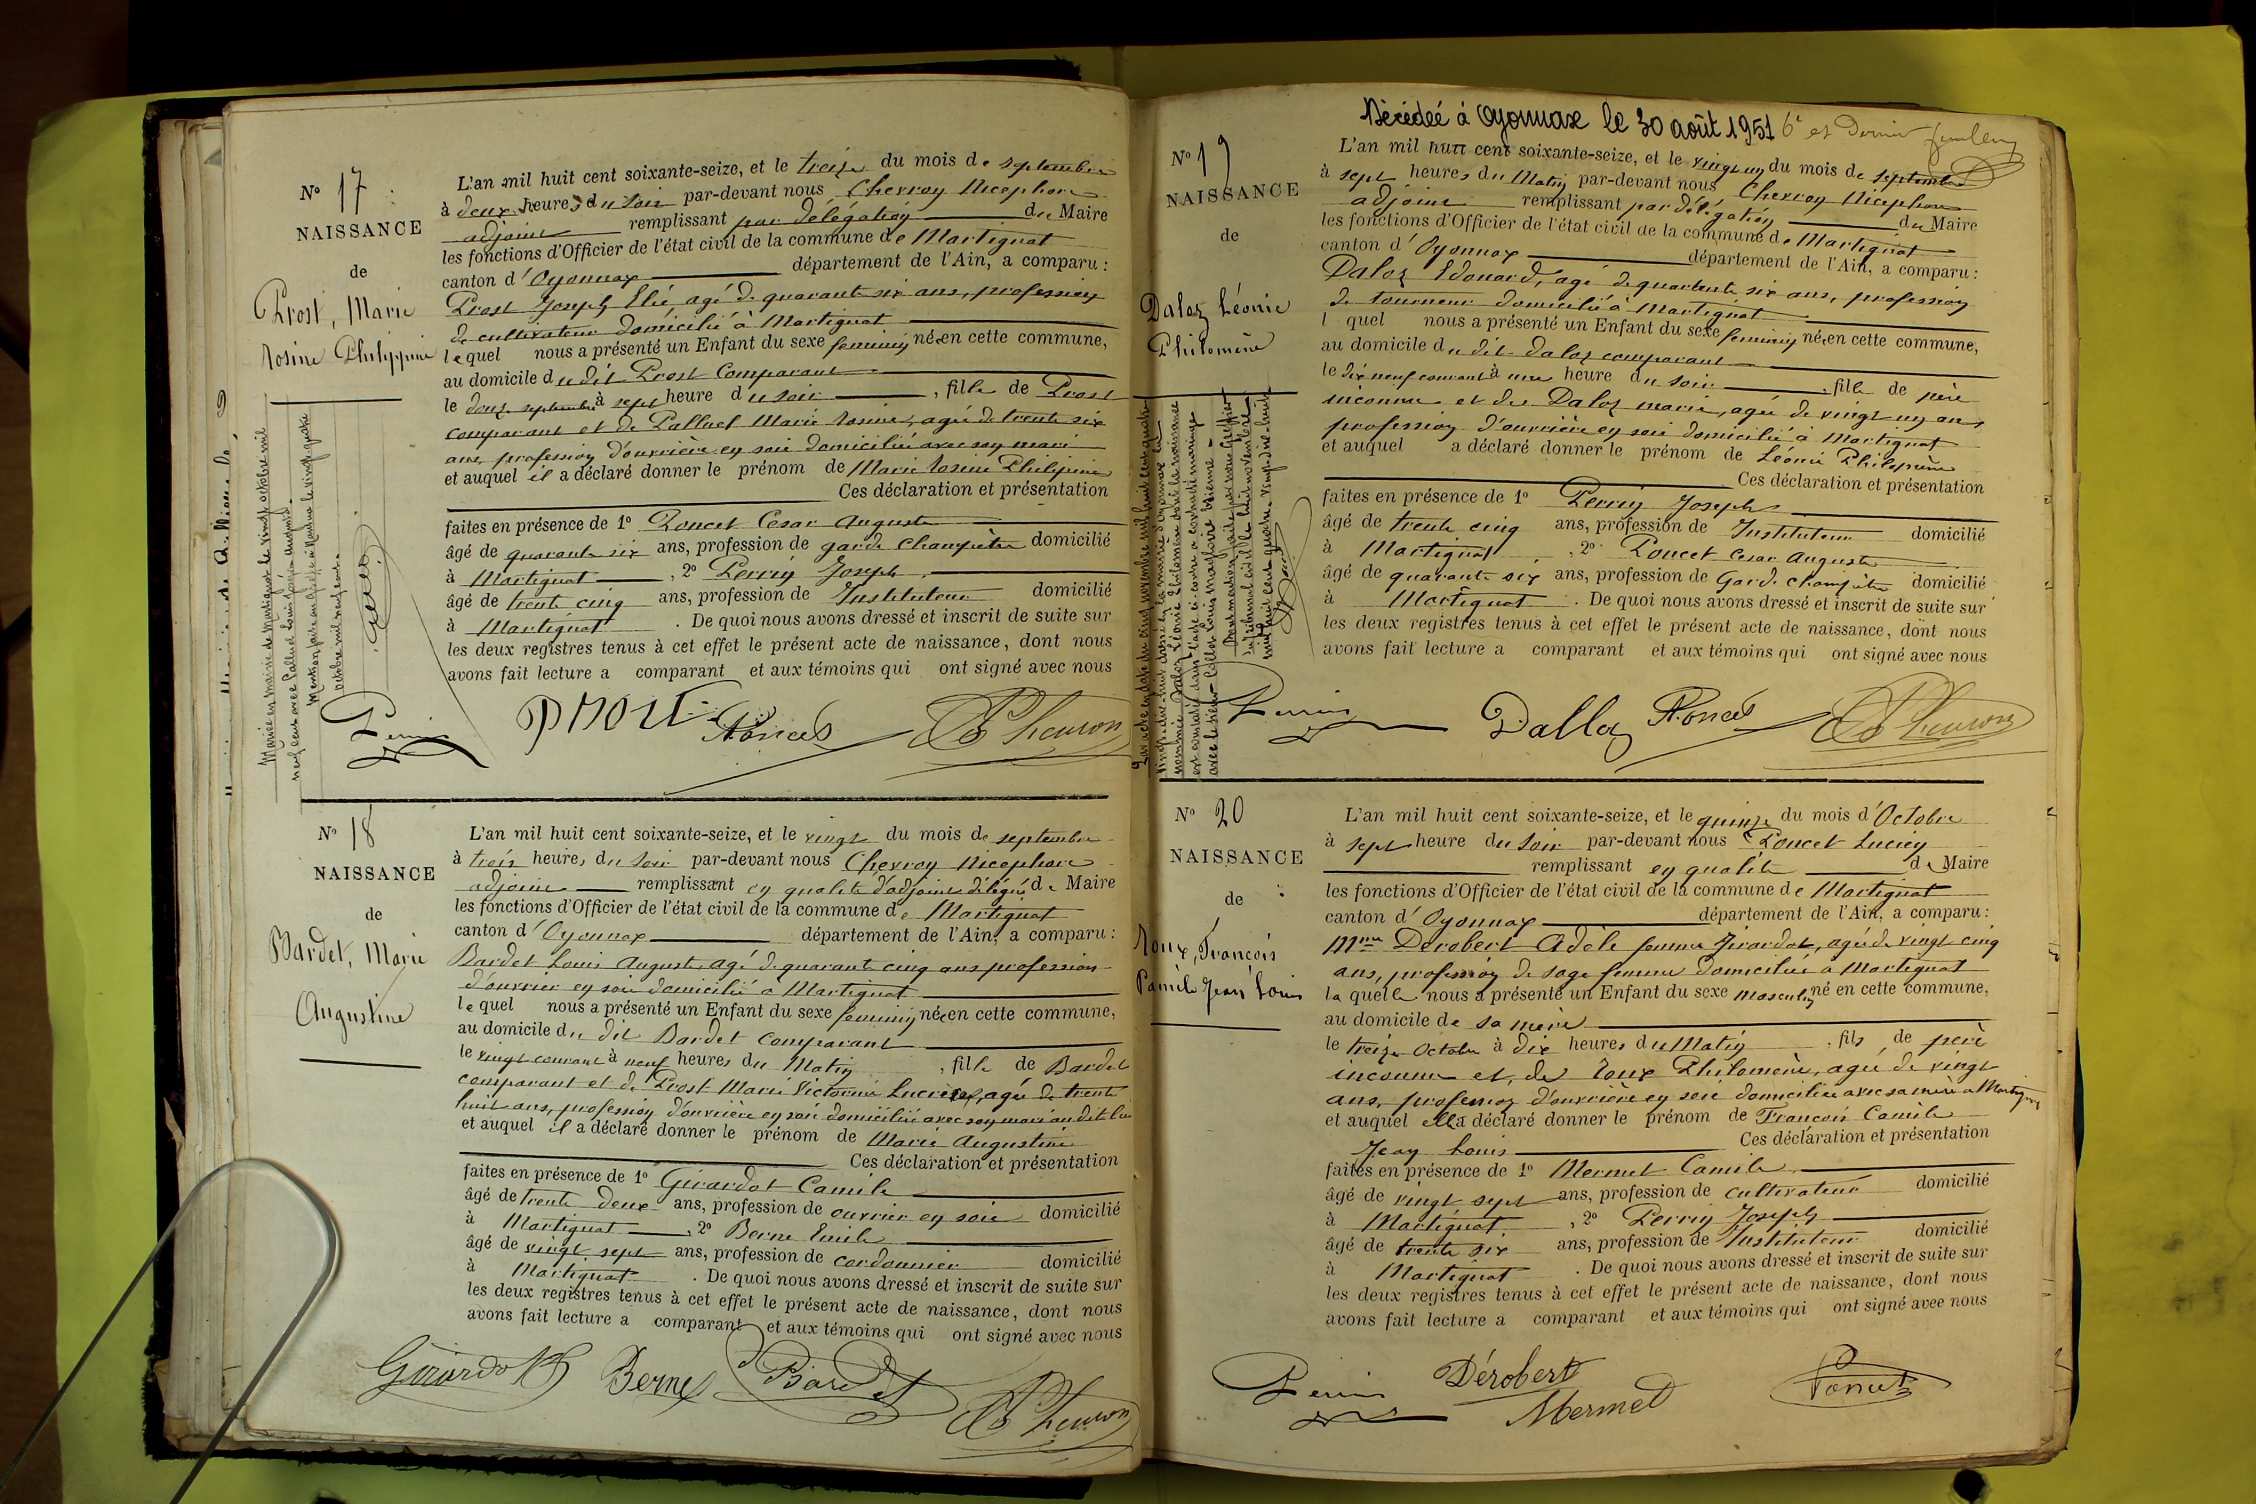 N° 17
NAISSANCE
de
Prost, Marie
Rosine Philippine
L'an mil huit cent soixante-seize, et le treize du mois de septembre
à deux heures du soir par-devant nous Chevron Nicephore
adjoint remplissant par délégation du Maire
les fonctions d'Officier de l'état civil de la commune de Martignat
canton d'Oyonnax département de l'Ain, a comparu :
Prost Joseph Elie, agé de quarante six ans, profession
de cultivateur domicilié à Martignat
lequel nous a présenté un Enfant du sexe feminin née en cette commune,
au domicile du dit Prost Comparant
le douze septembre à sept heure du soir , fille de Prost
comparant et de Palluel Marie Rosine, agée de trente six
ans, profession d'ouvrière en soie domiciliée avec son mari
et auquel il a déclaré donner le prénom de Marie Rosine Philipine
Ces déclaration et présentation
faites en présence de 1° Poncet Cesar Auguste
âgé de quarante six ans, profession de garde Champêtre domicilié
à Martignat , 2° Perrin Joseph
âgé de trente cinq ans, profession de Instituteur domicilié
à Martignat . De quoi nous avons dressé et inscrit de suite sur
les deux registres tenus à cet effet le présent acte de naissance, dont nous
avons fait lecture a comparant et aux témoins qui ont signé avec nous
Mariée en mairie de Martignat le vingt octobre mil
neuf cent avec Palluel Louis
octobre mil neuf cent
Perrin Prost Poncet Chevron
N° 18
NAISSANCE
de
Bardet, Marie
Augustine
L'an mil huit cent soixante-seize, et le vingt du mois de septembre
à trois heures du soir par-devant nous Chevron Nicephore
adjoint remplissant en qualité d'adjoint délégué de Maire
les fonctions d'Officier de l'état civil de la commune de Martignat
canton d'Oyonnax département de l'Ain, a comparu :
Bardet Louis Auguste, agé de quarante cinq ans profession
d'ouvrier en soie domicilié a Martignat
lequel nous a présenté un Enfant du sexe feminin née en cette commune,
au domicile du dit Bardet comparant
le vingt courant à neuf heures du Matin , fille de Bardet
comparant et de Prost Marie Victorine Lucrèce, agée de trente
huit ans, profession d'ouvrière en soie domiciliée avec son mari au dit lieu
et auquel il a déclaré donner le prénom de Marie Augustine
Ces déclaration et présentation
faites en présence de 1° Girardot Camile
âgé de trente deux ans, profession de ouvrier en soie domicilié
à Martignat , 2° Berne Emile
âgé de vingt sept ans, profession de cordonnier domicilié
à Martignat . De quoi nous avons dressé et inscrit de suite sur
les deux registres tenus à cet effet le présent acte de naissance, dont nous
avons fait lecture a comparant et aux témoins qui ont signé avec nous
Girardot Berne Bardet Chevron
Décédée à Oyonnax le 30 août 1951
6e et Dernier feuillet
N° 19
NAISSANCE
de
Daloz Léonie
Philomène
L'an mil huit cent soixante-seize, et le vingt un du mois de septembre
à sept heures du Matin par-devant nous Chevron Nicephore
adjoint remplissant par délégation du Maire
les fonctions d'Officier de l'état civil de la commune de Martignat
canton d'Oyonnax département de l'Ain, a comparu :
Daloz Edouard, agé de quarante six ans, profession
de tourneur domicilié à Martignat
l quel nous a présenté un Enfant du sexe feminin née en cette commune,
au domicile du dit Daloz comparant
le dix neuf courant à une heure du soir , fille de père
inconnu et de Daloz marie, agée de vingt un ans
profession d'ouvrière en soie domicilié à Martignat
et auquel a déclaré donner le prénom de Léonie Philomène
Ces déclaration et présentation
faites en présence de 1° Perrin Joseph
âgé de trente cinq ans, profession de Instituteur domicilié
à Martignat , 2° Poncet Cesar Auguste
âgé de quarante six ans, profession de Garde champêtre domicilié
à Martignat . De quoi nous avons dressé et inscrit de suite sur
les deux registres tenus à cet effet le présent acte de naissance, dont nous
avons fait lecture a comparant et aux témoins qui ont signé avec nous
Perrin Dalloz Poncet Chevron
N° 20
NAISSANCE
de
Roux, François
Camile Jean Louis
L'an mil huit cent soixante-seize, et le quinze du mois d'Octobre
à sept heure du soir par-devant nous Poncet Lucien
remplissant en qualité de Maire
les fonctions d'Officier de l'état civil de la commune de Martignat
canton d'Oyonnax département de l'Ain, a comparu :
Mme Derobert Adèle femme Girardot, agée de vingt cinq
ans, profession de sage femme domiciliée a Martignat
laquelle nous a présenté un Enfant du sexe masculin né en cette commune,
au domicile de sa mère
le treize Octobre à dix heures du Matin , fils de père
inconnu et de Roux Philomène, agée de vingt
ans, profession d'ouvrière en soie domiciliée avec sa mère a Martignat
et auquel elle a déclaré donner le prénom de François Camile
Jean Louis Ces déclaration et présentation
faites en présence de 1° Mermet Camile
âgé de vingt sept ans, profession de cultivateur domicilié
à Martignat , 2° Perrin Joseph
âgé de trente six ans, profession de Instituteur domicilié
à Martignat . De quoi nous avons dressé et inscrit de suite sur
les deux registres tenus à cet effet le présent acte de naissance, dont nous
avons fait lecture a comparant et aux témoins qui ont signé avec nous
Perrin Dérobert Mermet Poncet